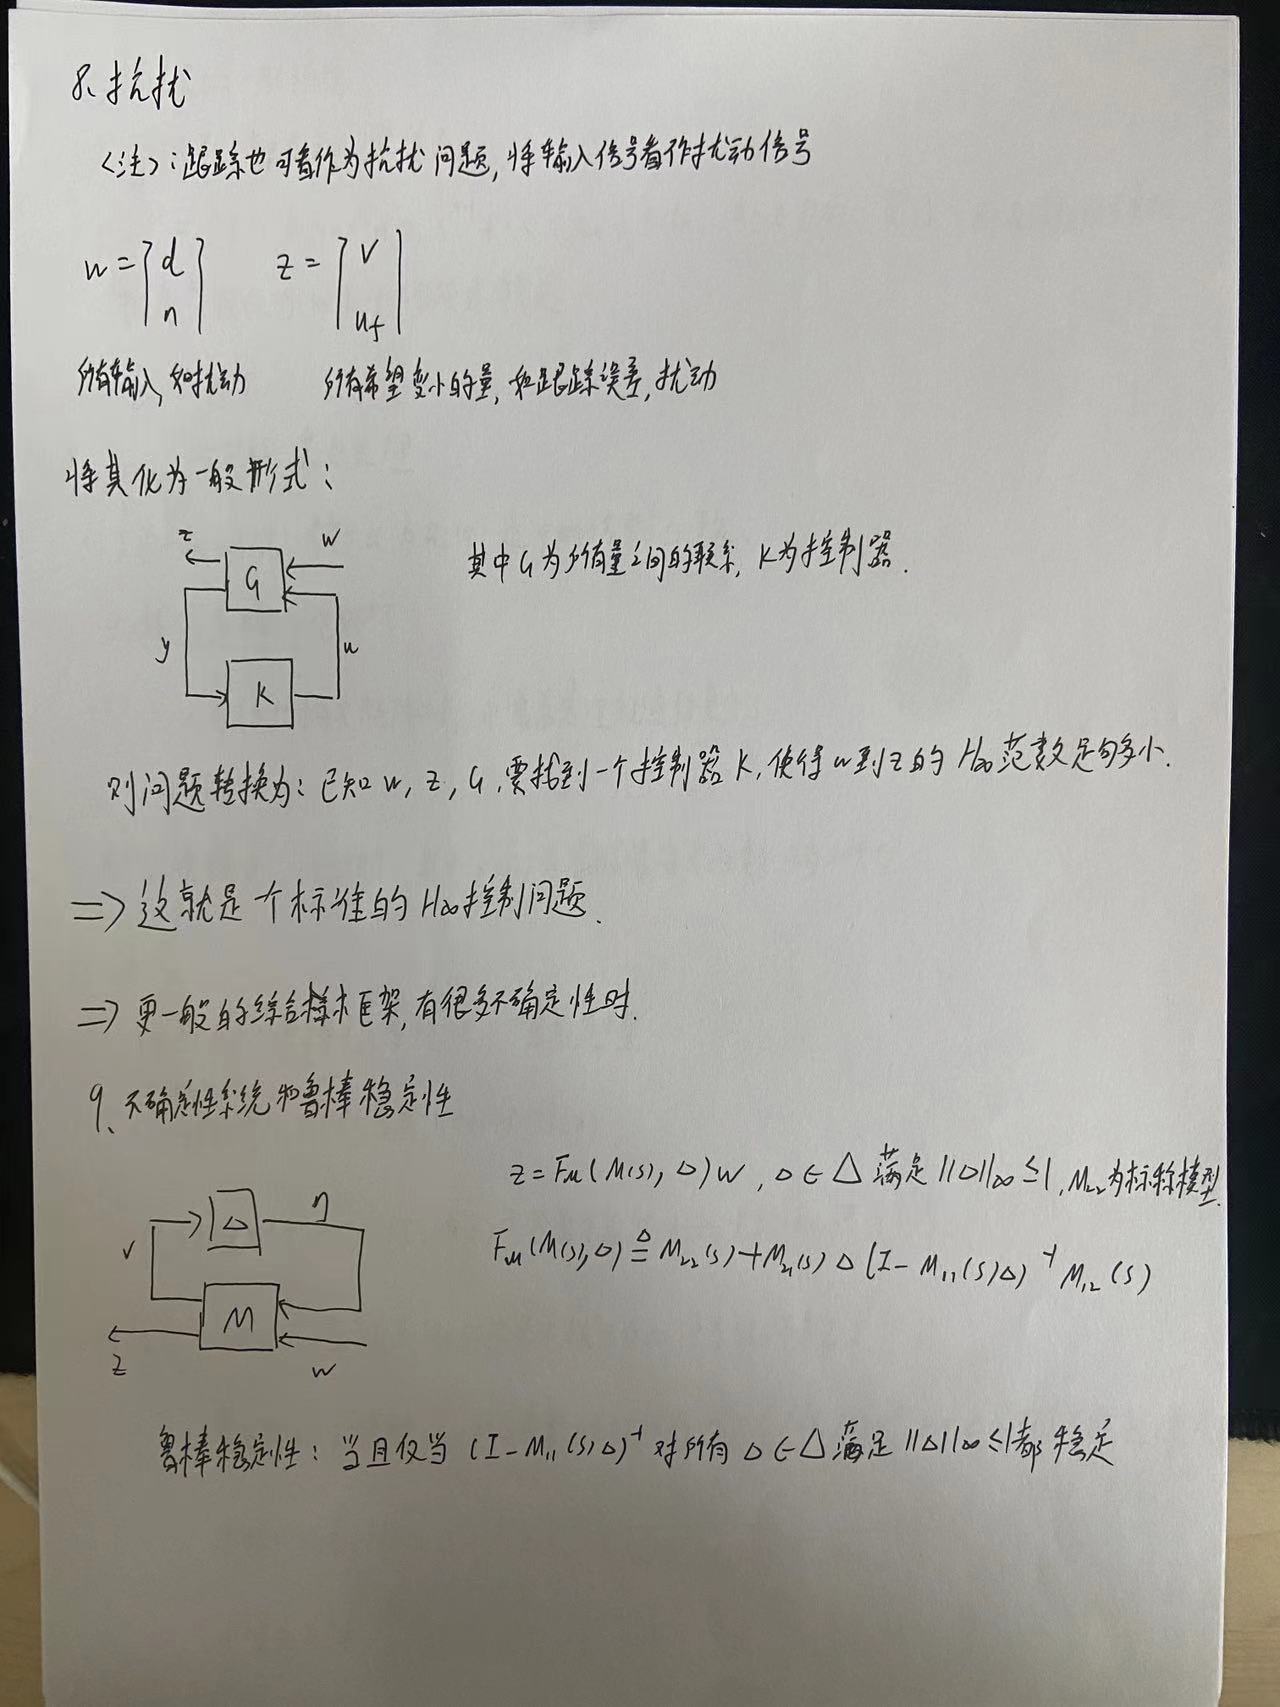 8、抗扰
<注>:跟踪也可看作为抗扰问题,将输入信号看作扰动信号
w = [d n] z = [v uf]
所有输入,如扰动 所有希望变小的量,如跟踪误差,扰动
将其化为一般形式:
z w
G
其中G为所有量之间的联系, K为控制器.
y u
K
则问题转换为: 已知 w, z, G, 要找到一个控制器 K, 使得 w到z的 H∞范数足够小.
=> 这就是一个标准的 H∞控制问题.
=> 更一般的综合框架,有很多不确定性时.
9、不确定性系统和鲁棒稳定性
z = Fu(M(s), Δ)w, Δ ∈ Δ 满足 ||Δ||∞ ≤ 1, M22为标称模型.
Δ η
v
Fu(M(s), Δ) ≜ M22(s) + M21(s) Δ (I - M11(s)Δ)⁻¹ M12(s)
M
z w
鲁棒稳定性: 当且仅当 (I - M11(s)Δ)⁻¹ 对所有 Δ ∈ Δ 满足 ||Δ||∞ ≤ 1都稳定